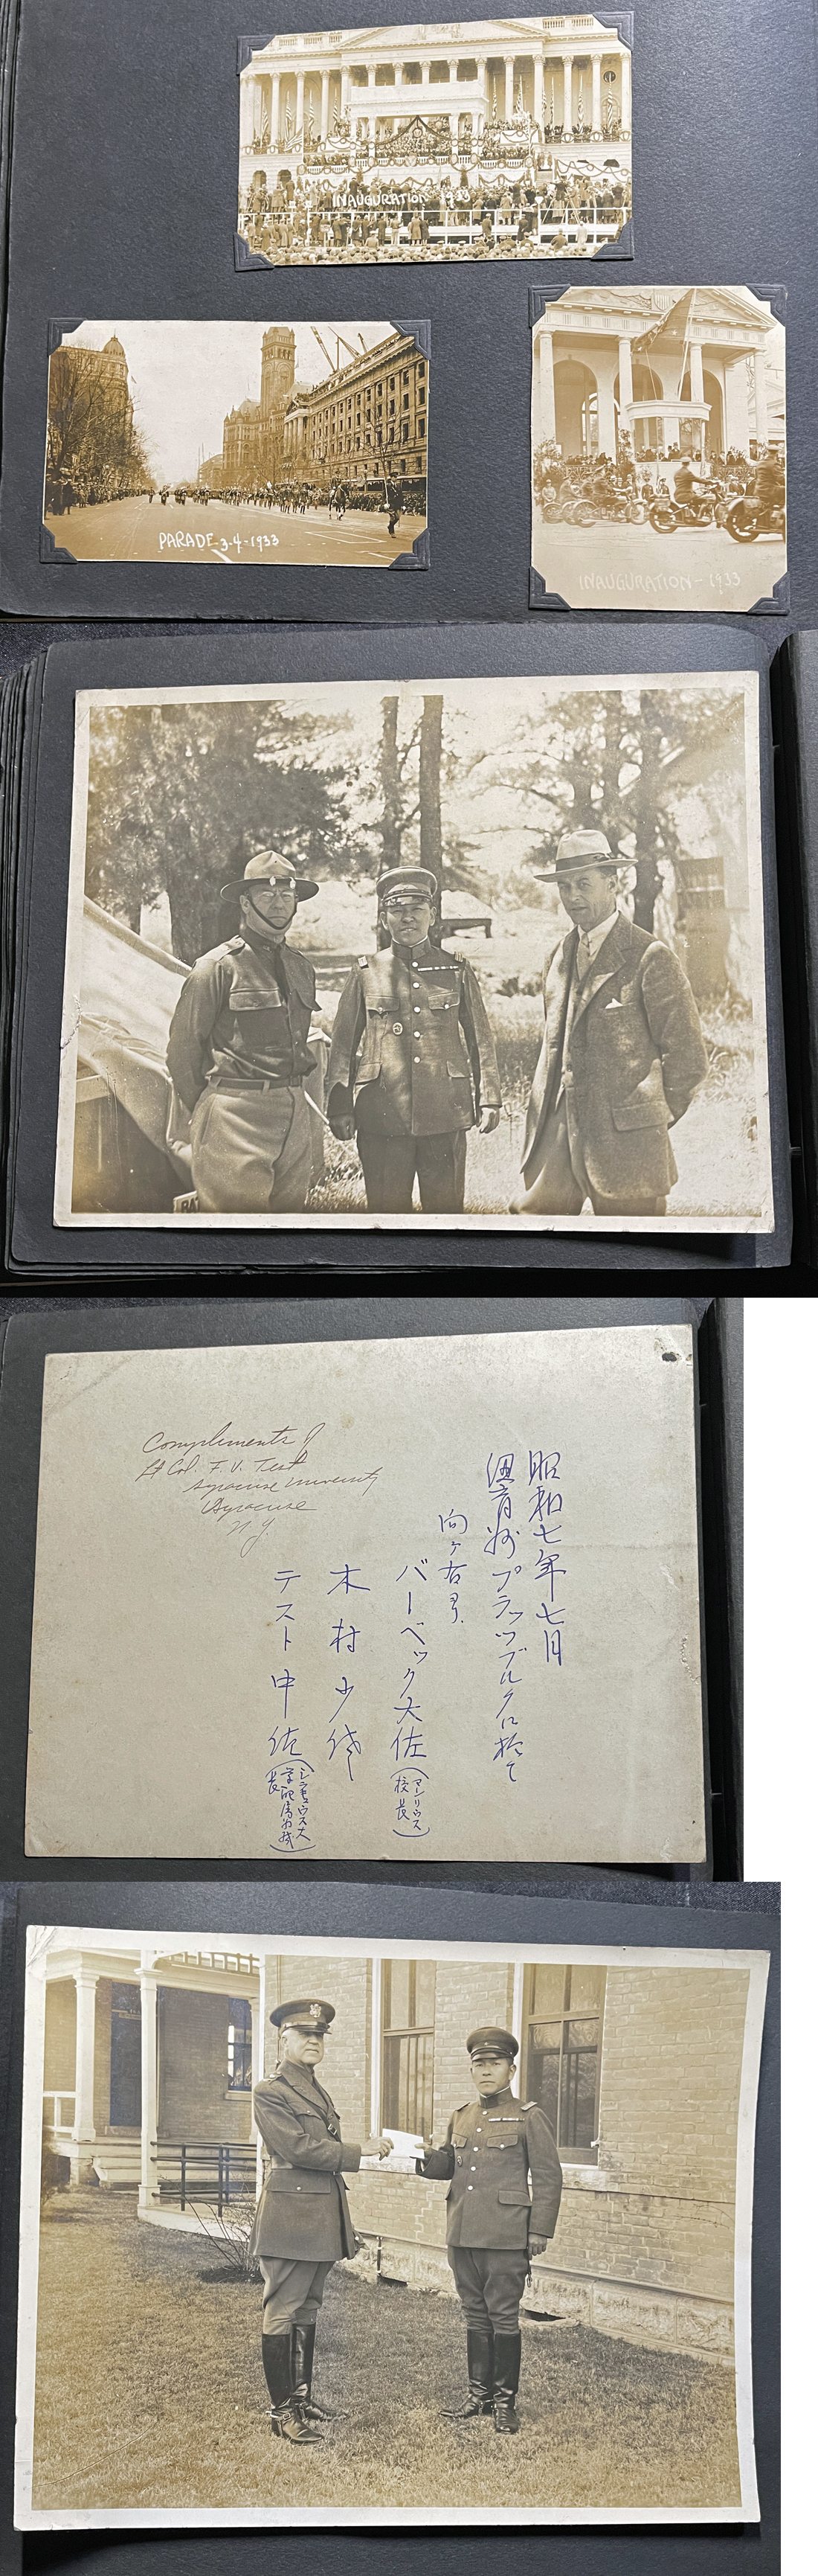 INAUGURATION 1933
PARADE-3-4-1933
INAUGURATION-1933
Compliments of
Lt Col. F. V. Test
Syracuse University
Syracuse
N.Y.
昭和七年七月
紐育州プラッツブルクに於て
向ヶ右ヨリ
バーベック大佐(マンリウス
校長)
木村少佐
テスト中佐(シラキュウス大
学配属
長)